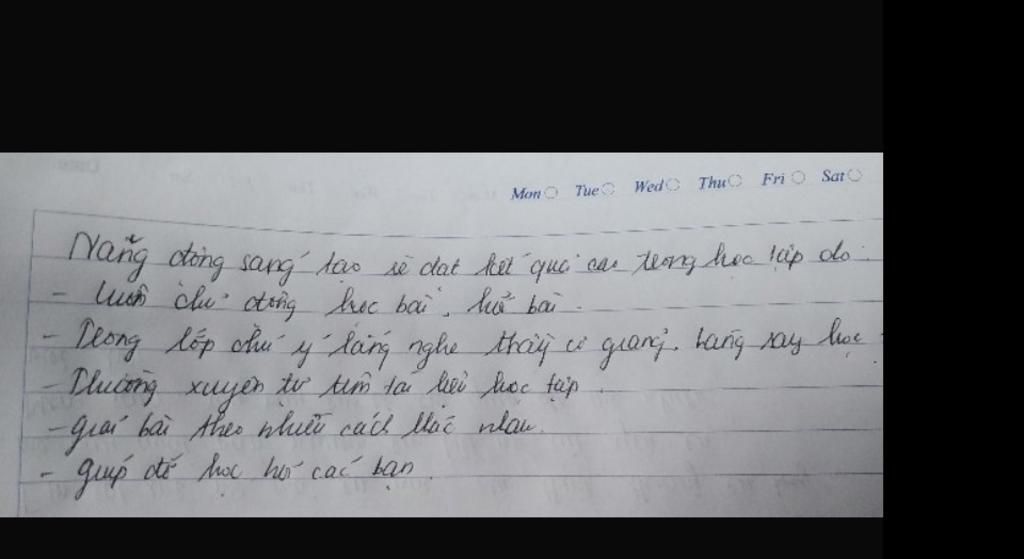 Mon Tue Wed Thu Fri Sat
Năng động sáng tạo sẽ đạt kết quả cao trong học tập do:
- luôn chủ động học bài,  bài.
- Trong lớp chú ý lắng nghe thầy cô giảng. hăng say học
- Thường xuyên tự tìm tài liệu học tập.
- giải bài theo nhiều cách khác nhau.
- giúp đỡ học hỏi các bạn.